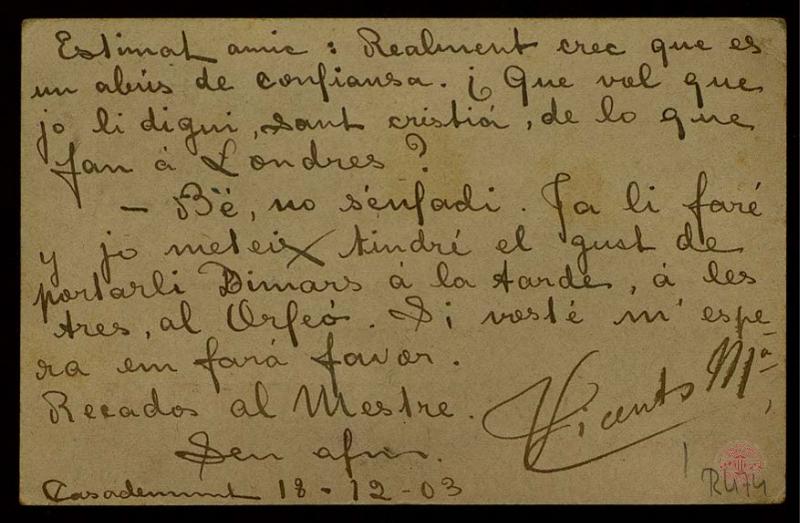 Estimat amic : Realment crec que es
un abús de confiansa. ¿ Que vol que
jo li digui, sant cristiá, de lo que
fan á Londres ?
— Bé, no s'enfadi. Ja li faré
y jo meteix tindré el gust de
portarli Dimars á la tarde, á les
tres, al Orfeó. Si vosté m' espe-
ra em fará favor.
Recados al Mestre.
Vicents Mª
Seu afm.
Casademunt 18 - 12 - 03
R474